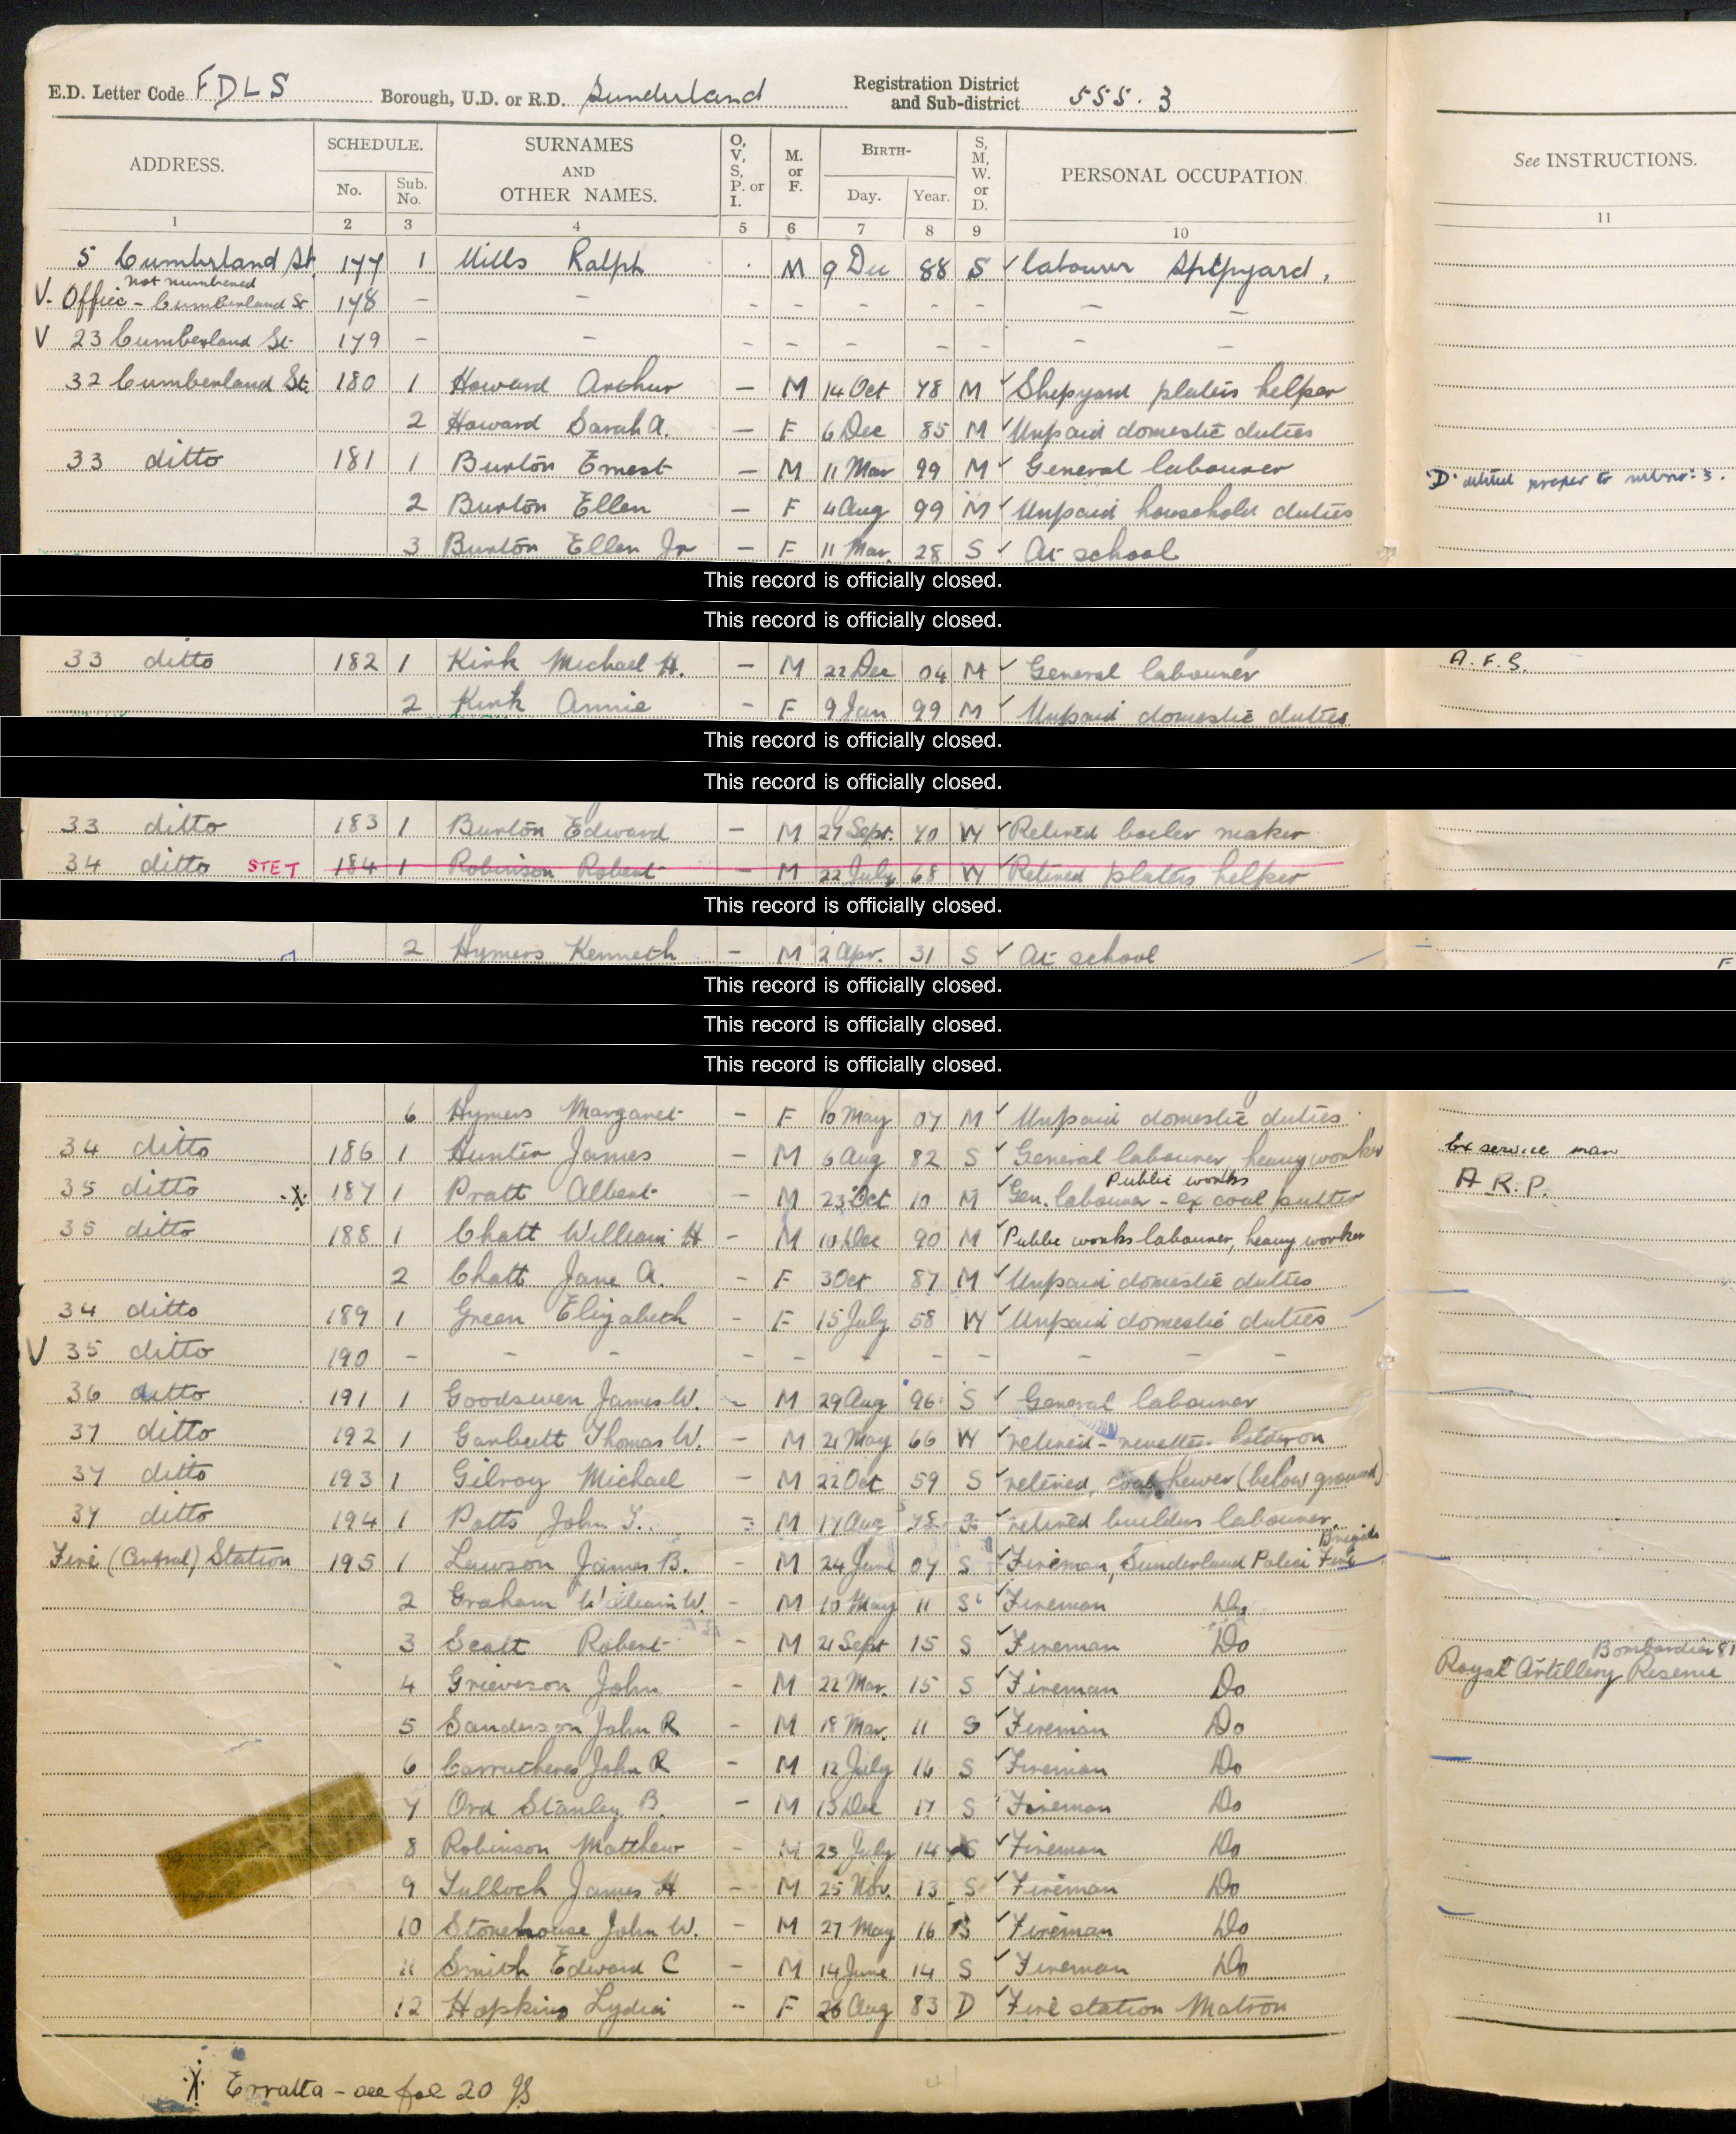 E.D. Letter Code FDLS Borough, U.D. or R.D. Sunderland Registration District and Sub-district 555.3
ADDRESS. SCHEDULE. No. Sub. No. SURNAMES AND OTHER NAMES. O, V, S, P. or I. M. or F. BIRTH- Day. Year. S, M, W. or D. PERSONAL OCCUPATION See INSTRUCTIONS.
1 2 3 4 5 6 7 8 9 10 11
5 Cumberland St. 177 1 Mills Ralph M 9 Dec 88 S ✓ labourer Shipyard.
not numbered
V. Office - Cumberland St 178 - - - - - - - - -
V 23 Cumberland St 179 - - - - - - - - -
32 Cumberland St. 180 1 Howard Arthur - M 14 Oct 78 M ✓ Shipyard platers helper
2 Howard Sarah A. - F 6 Dec 85 M ✓ Unpaid domestic duties
33 ditto 181 1 Burton Ernest - M 11 Mar 99 M ✓ General labourer "D"
2 Burton Ellen - F 4 Aug 99 M ✓ Unpaid household duties
3 Burton Ellen Jr - F 11 Mar. 28 S ✓ At school
This record is officially closed.
This record is officially closed.
33 ditto 182 1 Kirk Michael H. - M 22 Dec 04 M ✓ General labourer A.F.S.
2 Kirk Annie - F 9 Jan 99 M ✓ Unpaid domestic duties
This record is officially closed.
This record is officially closed.
33 ditto 183 1 Burton Edward - M 27 Sept. 70 W ✓ Retired boiler maker
34 ditto STET 184 1 Robinson Robert - M 22 July 68 W ✓ Retired platers helper
This record is officially closed.
2 Hymers Kenneth - M 2 Apr. 31 S ✓ At school
This record is officially closed.
This record is officially closed.
This record is officially closed.
6 Hymers Margaret - F 10 May 07 M ✓ Unpaid domestic duties
34 ditto 186 1 Hunter James - M 6 Aug 82 S ✓ General labourer, heavy worker Ex service man
Public works
35 ditto X 187 1 Pratt Albert - M 23 Oct 10 M ✓ Gen. labourer - ex coal putter A.R.P.
35 ditto 188 1 Chatt William H - M 10 Dec 90 M ✓ Public works labourer, heavy worker
2 Chatt Jane A. - F 3 Oct 87 M ✓ Unpaid domestic duties
34 ditto 189 1 Green Elizabeth - F 15 July 58 W ✓ Unpaid domestic duties
V 35 ditto 190 - - - - - - - - - - -
36 ditto 191 1 Goodswen James W. - M 29 Aug 96 S ✓ General labourer
37 ditto 192 1 Garbutt Thomas W. - M 21 May 66 W ✓ retired - rivetter holder on
37 ditto 193 1 Gilroy Michael - M 22 Oct 59 S ✓ retired, coal hewer (below ground)
37 ditto 194 1 Potts John T. - M 17 Aug ✓ retired builders labourer
Brigade
Fire (Central) Station 195 1 Lawson James B. - M 24 June 07 S ✓ Fireman, Sunderland Police Fire
2 Graham William W. - M 10 May 11 S ✓ Fireman Do
3 Scott Robert - M 21 Sept 15 S ✓ Fireman Do
Bombardier 81
4 Grieveson John - M 22 Mar. 15 S ✓ Fireman Do Royal Artillery Reserve
5 Sanderson John R - M 18 Mar. 11 S ✓ Fireman Do
6 Carrutheres John R - M 12 July 16 S ✓ Fireman Do
7 Ord Stanley B. - M 13 Dec 17 S Fireman Do
8 Robinson Matthew - M 25 July 14 S ✓ Fireman Do
9 Tulloch James H - M 25 Nov. 13 S ✓ Fireman Do
10 Stonehouse John W. - M 27 May 16 S ✓ Fireman Do
11 Smith Edward C - M 14 June 14 S ✓ Fireman Do
12 Hopkins Lydia - F 26 Aug 83 D ✓ Fire station Matron
X Erratta - see fol 20